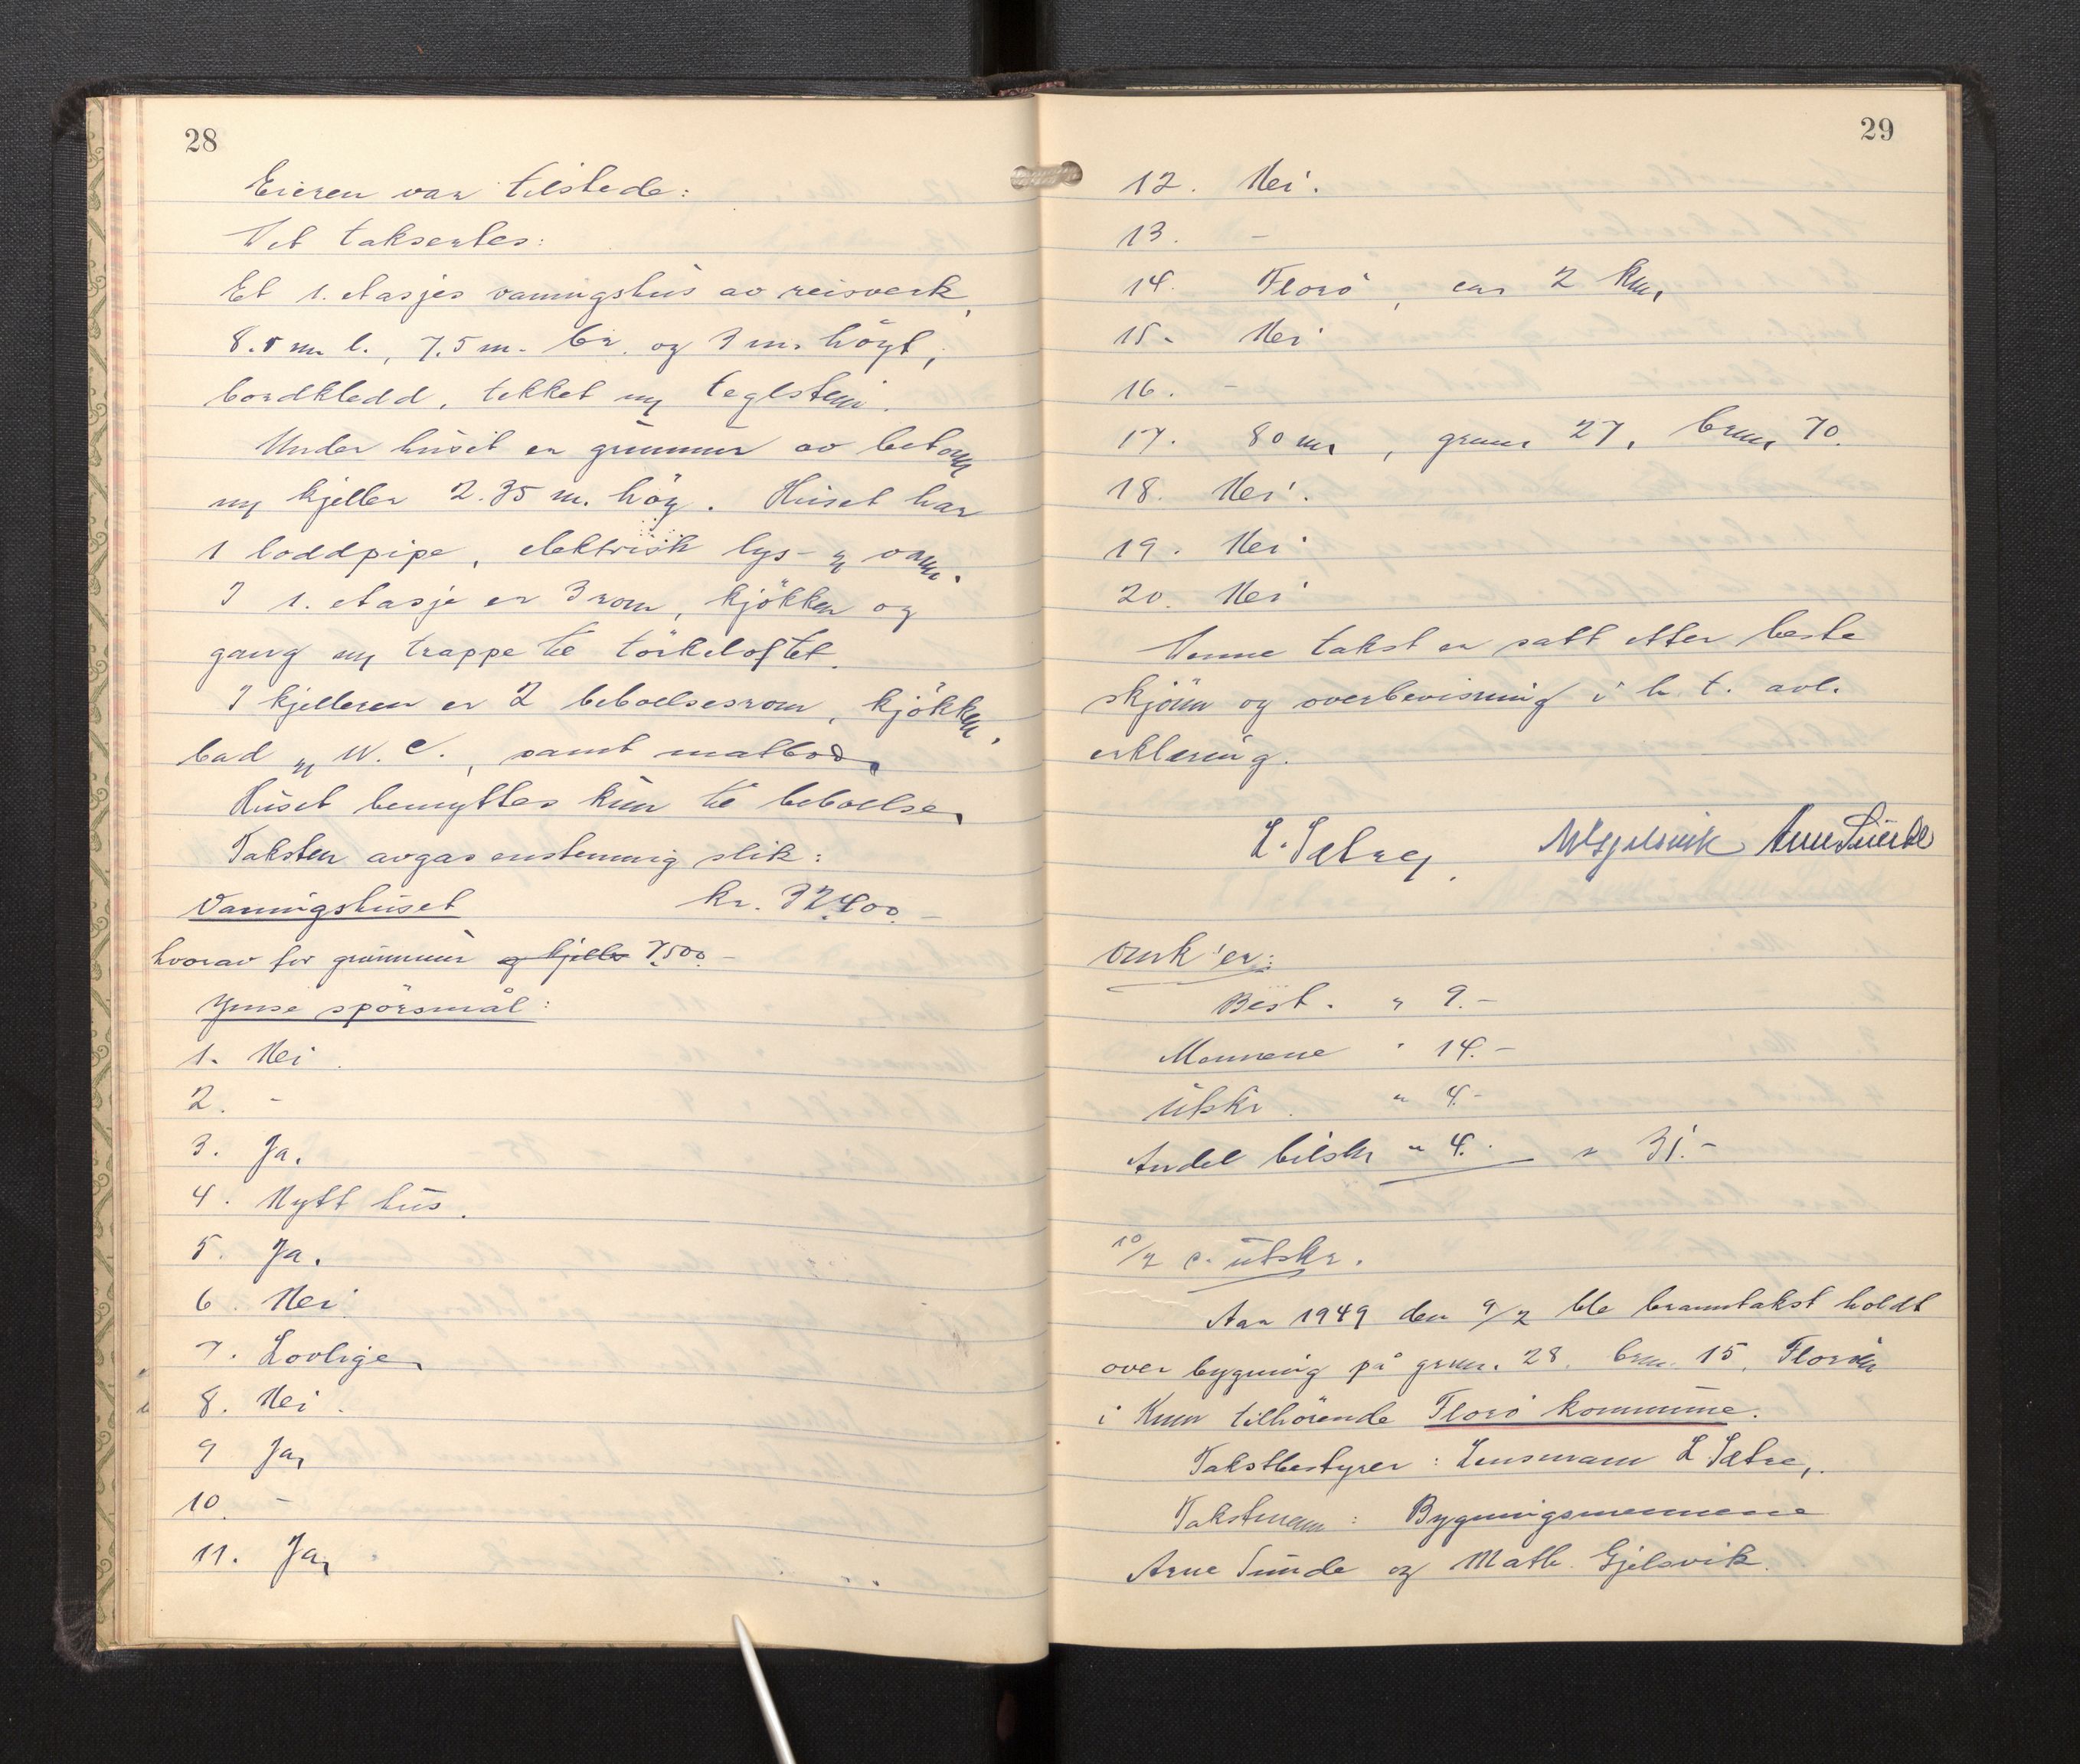 28
Eieren var tilstede:
Det taksertes:
Et 1. etasjes vaningshus av reisverk,
8.5 m. l., 7.5 m. br. og 3 m. höyt,
bordkledd, tekket m/ teglstein.
Under huset er grunnmur av betong
m/ kjeller 2.35 m. höy. Huset har
1 loddpipe, elektrisk lys- og vann.
I 1. etasje er 3 rom, kjökken og
gang m/ trappe til törkeloftet.
I kjelleren er 2 beboelsesrom, kjökken,
bad og W.C., samt matbod.
Huset benyttes kun til beboelse.
Taksten avgas enstemmig slik:
Vaningshuset kr. 32400.-
hvorav for grunnmur og kjeller 7500.-
Ymse spörsmål:
1. Nei.
2. -
3. Ja.
4. Nytt hus.
5. Ja.
6. Nei
7. Lovlige.
8. Nei.
9 Ja.
10. -
11. Ja.
29
12. Nei.
13. -
14. Florö, ca. 2 km.
15. Nei
16. -
17. 80 m., gnr. 27, brnr. 70.
18. Nei.
19. Nei
20. Nei
Denne takst er satt etter beste
skjönn og overbevisning i h.t. avl.
erklæring.
L. Sætre, M Gjelsvik Arne Sunde
Omk'er:
Best. " 9.-
Mennene " 14.-
Utskr. " 4.-
Andel bilsk. " 4.- " 31.-
10/2 e. utskr.
Aar 1949 den 9/2 ble branntakst holdt
over bygning på grnr. 28, brnr. 15, Florön
i Kinn tilhörende Florö kommune.
Takstbestyrer: Lensmann L Sætre,
Takstmenn: Bygningsmennene
Arne Sunde og Math. Gjelsvik.